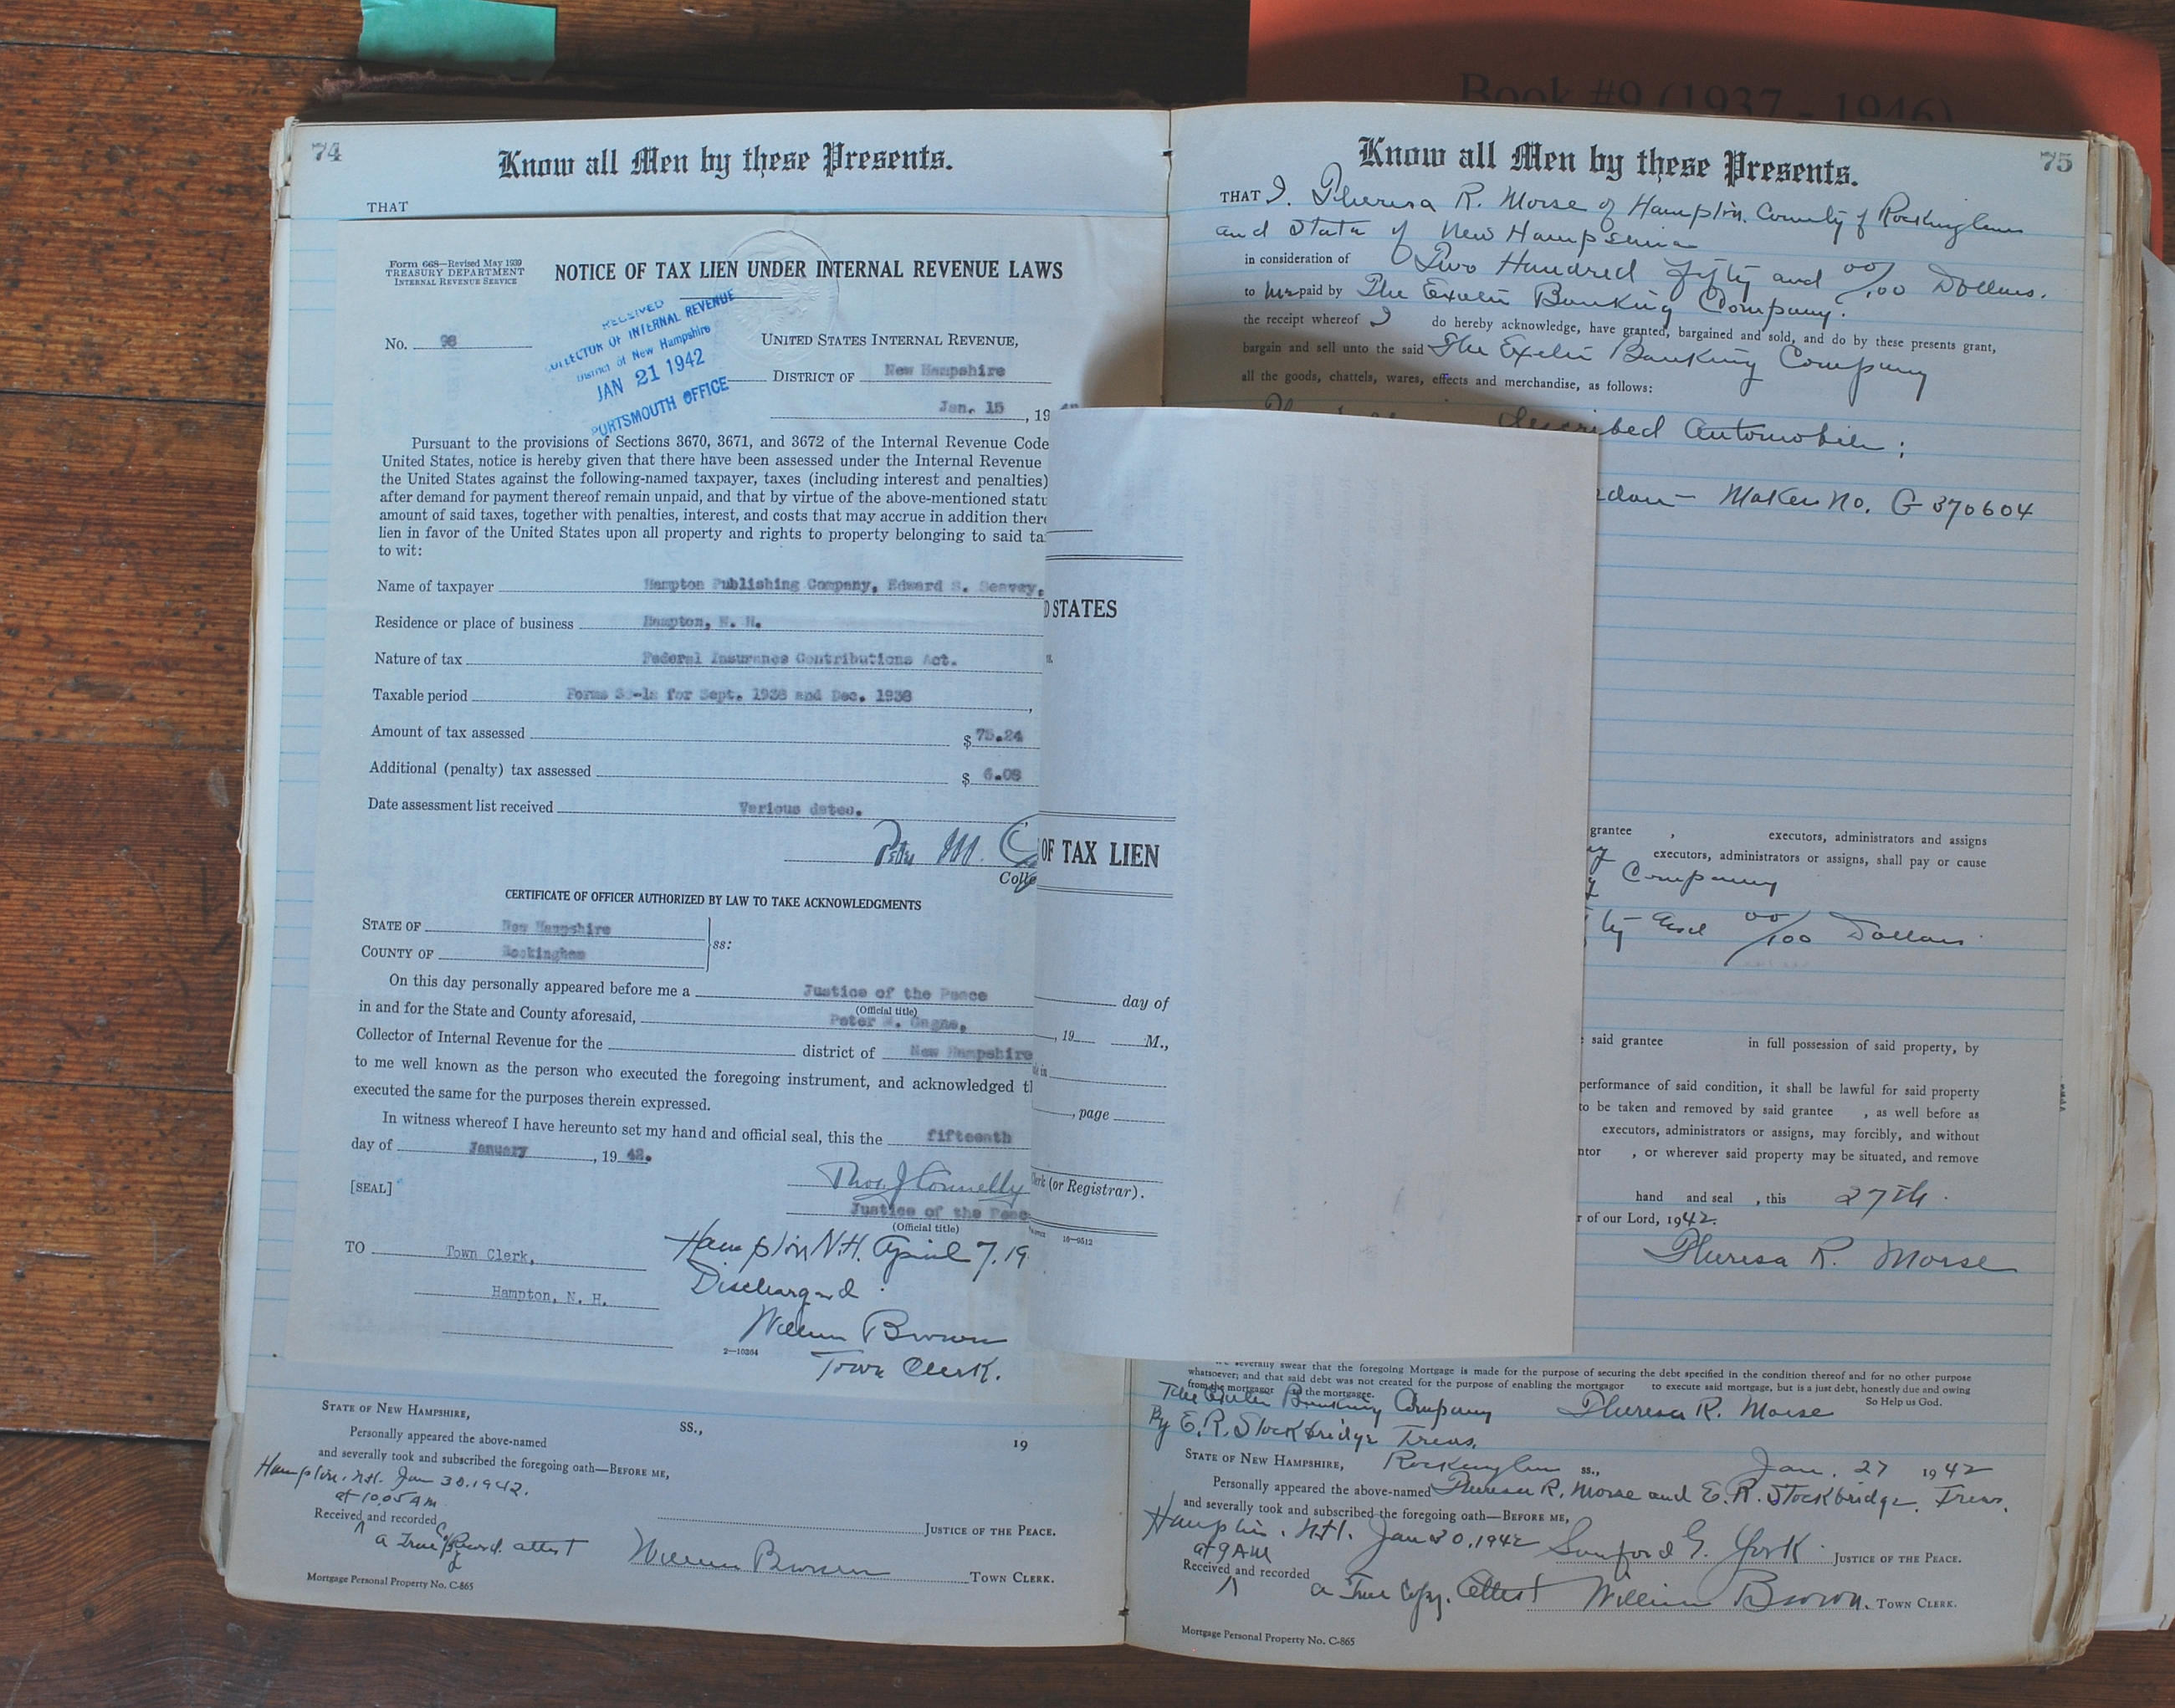 Book #9 (1937 - 1946)
74
Know all Men by these Presents.
THAT
Form 668—Revised May 1939
TREASURY DEPARTMENT
INTERNAL REVENUE SERVICE
NOTICE OF TAX LIEN UNDER INTERNAL REVENUE LAWS
RECEIVED
COLLECTOR OF INTERNAL REVENUE
District of New Hampshire
JAN 21 1942
PORTSMOUTH OFFICE
No. 98
UNITED STATES INTERNAL REVENUE,
DISTRICT OF New Hampshire
Jan. 15, 19
Pursuant to the provisions of Sections 3670, 3671, and 3672 of the Internal Revenue Code
United States, notice is hereby given that there have been assessed under the Internal Revenue
the United States against the following-named taxpayer, taxes (including interest and penalties)
after demand for payment thereof remain unpaid, and that by virtue of the above-mentioned statu
amount of said taxes, together with penalties, interest, and costs that may accrue in addition there
lien in favor of the United States upon all property and rights to property belonging to said ta
to wit:
Name of taxpayer Hampton Publishing Company, Edward S. Seavey,
Residence or place of business Hampton, N. H.
Nature of tax Federal Insurance Contributions Act.
Taxable period Forms SS-1a for Sept. 1938 and Dec. 1938
Amount of tax assessed $ 75.24
Additional (penalty) tax assessed $ 6.08
Date assessment list received Various dates.
Peter M.
Colle
CERTIFICATE OF OFFICER AUTHORIZED BY LAW TO TAKE ACKNOWLEDGMENTS
STATE OF New Hampshire
ss:
COUNTY OF Rockingham
On this day personally appeared before me a Justice of the Peace
(Official title)
in and for the State and County aforesaid, Peter M. Gagne,
Collector of Internal Revenue for the district of New Hampshire
to me well known as the person who executed the foregoing instrument, and acknowledged tl
executed the same for the purposes therein expressed.
In witness whereof I have hereunto set my hand and official seal, this the fifteenth
day of January, 19 42.
[SEAL]
Thos J Connelly
Justice of the Peac
(Official title)
TO Town Clerk,
Hampton, N. H.
Hampton N.H. April 7, 19
Discharged
William Brown
Town Clerk.
2—10364
STATE OF NEW HAMPSHIRE, SS., 19
Personally appeared the above-named
and severally took and subscribed the foregoing oath—BEFORE ME,
Hampton, N.H. Jan 30, 1942.
at 10.05 AM
JUSTICE OF THE PEACE.
Received and recorded
a True Record. attest William Brown TOWN CLERK.
Mortgage Personal Property No. C-865
D STATES
OF TAX LIEN
day of
, 19 M.,
, page
(or Registrar).
16—9512
Know all Men by these Presents.
75
THAT I. Theresa R. Morse of Hampton. County of Rockingham
and State of New Hampshire
in consideration of Two Hundred fifty and 00/100 Dollars.
to me paid by The Exeter Banking Company.
the receipt whereof I do hereby acknowledge, have granted, bargained and sold, and do by these presents grant,
bargain and sell unto the said The Exeter Banking Company
all the goods, chattels, wares, effects and merchandise, as follows:
described Automobile;
Maker No. G 370604
grantee , executors, administrators and assigns
executors, administrators or assigns, shall pay or cause
Company
ty and 00/100 Dollars
said grantee in full possession of said property, by
performance of said condition, it shall be lawful for said property
to be taken and removed by said grantee , as well before as
executors, administrators or assigns, may forcibly, and without
ntor , or wherever said property may be situated, and remove
hand and seal , this 27th.
r of our Lord, 1942.
Theresa R. Morse
severally swear that the foregoing Mortgage is made for the purpose of securing the debt specified in the condition thereof and for no other purpose
whatsoever; and that said debt was not created for the purpose of enabling the mortgagor to execute said mortgage, but is a just debt, honestly due and owing
from the mortgagor to the mortgagee.
So Help us God.
The Exeter Banking Company Theresa R. Morse
By E. R. Stockbridge Treas.
STATE OF NEW HAMPSHIRE, Rockingham ss., Jan. 27 1942
Personally appeared the above-named Theresa R. Morse and E. R. Stockbridge, Treas.
and severally took and subscribed the foregoing oath—BEFORE ME,
Hampton, N.H. Jan 30, 1942
at 9 AM
Sanford G. York JUSTICE OF THE PEACE.
Received and recorded
a True Copy. Attest William Brown. TOWN CLERK.
Mortgage Personal Property No. C-865